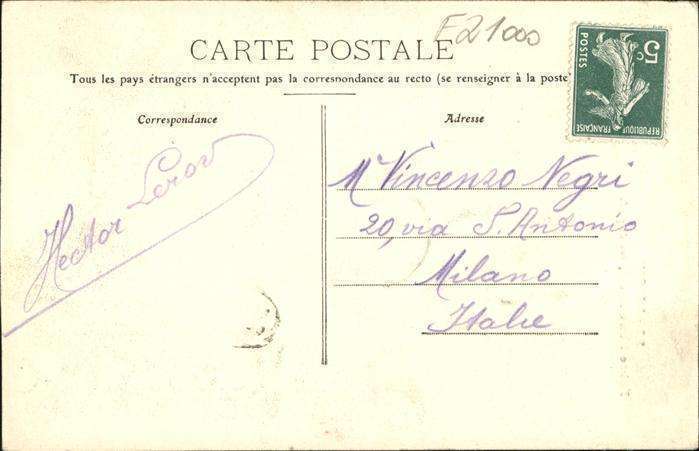 E21000
CARTE POSTALE
Tous les pays étrangers n'acceptent pas la correspondance au recto (se renseigner à la poste)
Correspondance
Adresse
5c
POSTES
REPUBLIQUE FRANÇAISE
Hector Leroy
Mr Vincenzo Negri
20, via S. Antonio
Milano
Italie